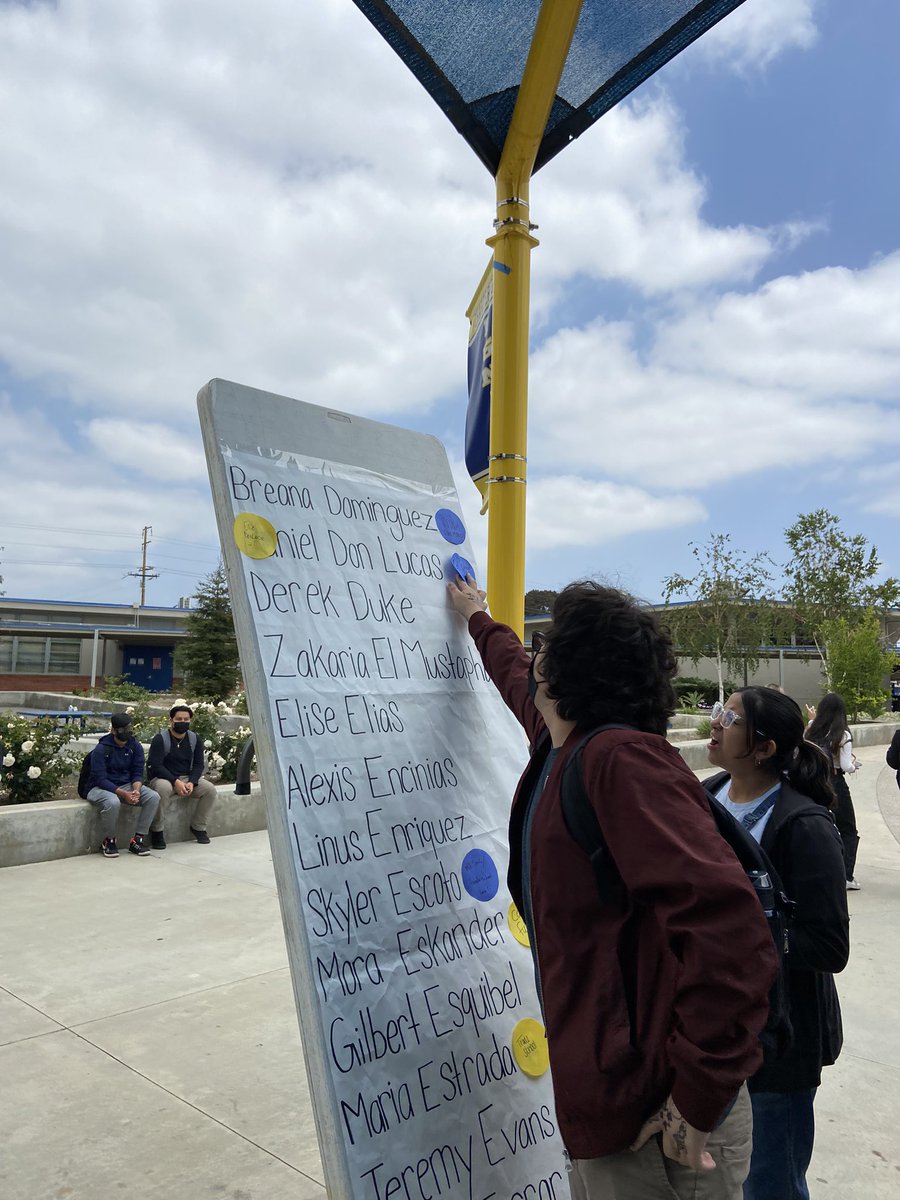 Breana Dominguez
niel Don Lucas
Derek Duke
Zakaria El Mustapha
Elise Elias
Alexis Encinias
Linus Enriquez
Skyler Escoto
Mora Eskander
Gilbert Esquibel
Maria Estrada
Trad School
Jeremy Evans